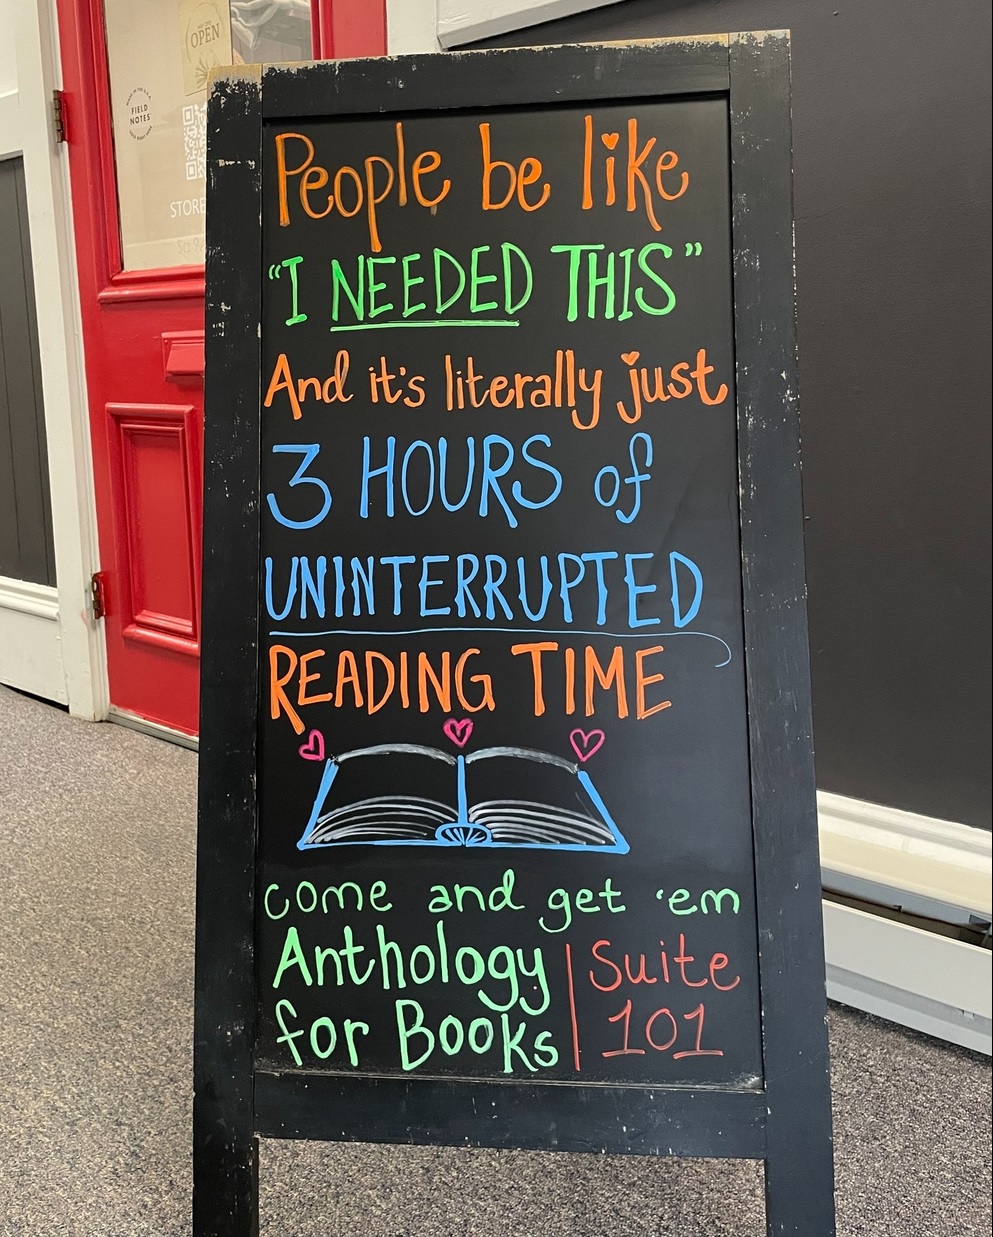 OPEN
FIELD
NOTES
People be like
“I NEEDED THIS”
And it's literally just
3 HOURS of
UNINTERRUPTED
READING TIME
come and get 'em
Anthology
for Books
Suite
101